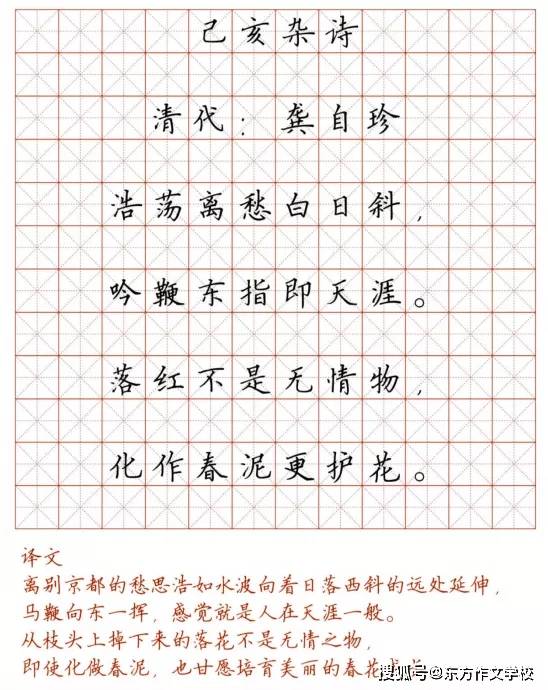 己亥杂诗
清代：龚自珍
浩荡离愁白日斜，
吟鞭东指即天涯。
落红不是无情物，
化作春泥更护花。
译文
离别京都的愁思浩如水波向着日落西斜的远处延伸，
马鞭向东一挥，感觉就是人在天涯一般。
从枝头上掉下来的落花不是无情之物，
即使化做春泥，也甘愿培育美丽的春花
搜狐号@东方作文学校